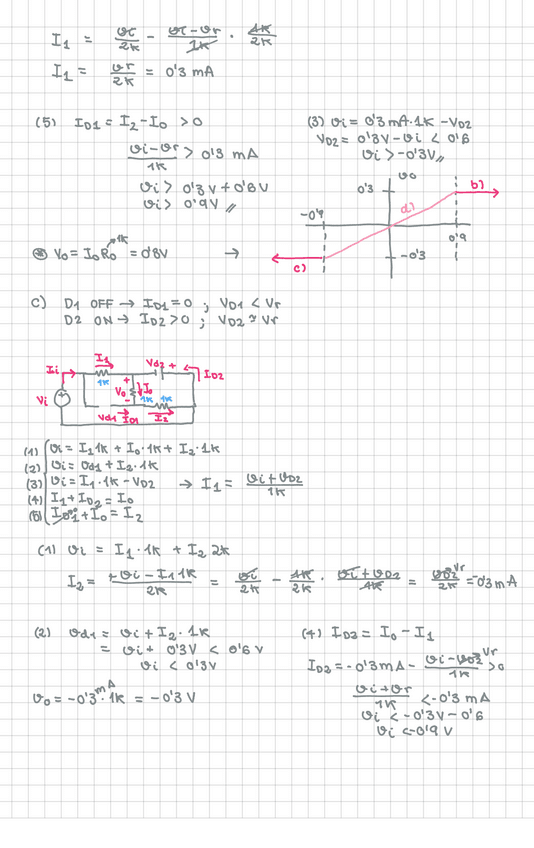 I1 = vi/2k - (vi-vr)/1k · 1k/2k
I1 = vr/2k = 0'3 mA
(5) ID1 = I2 - I0 > 0
(vi-vr)/1k > 0'3 mA
vi > 0'3V + 0'6V
vi > 0'9V //
(3) vi = 0'3mA·1k - VD2
VD2 = 0'3V - vi < 0'6
vi > -0'3V //
v0
0'3
b)
a)
-0'9
0'9
c)
-0'3
V0 = I0 R0 1k = 0'8V →
C) D1 OFF → ID1 = 0 ; VD1 < Vr
D2 ON → ID2 > 0 ; VD2 ≃ Vr
I1
Ii
1k
Vd2 +
ID2
Vi
+
V0
-
I0
1k
1k
Vd1
ID1
I2
(1) vi = I1 1k + I0·1k + I2·1k
(2) vi = vd1 + I2·1k
(3) vi = I1·1k - VD2 → I1 = (vi+vD2)/1k
(4) I1 + ID2 = I0
(5) ID1 0 + I0 = I2
(1) vi = I1·1k + I2 2k
I2 = (+vi - I1 1k)/2k = vi/2k - 1k/2k · (vi+vD2)/1k = vD2 Vr/2k = -0'3 mA
(2) vd1 = vi + I2·1k
= vi + 0'3V < 0'6V
vi < 0'3V
v0 = -0'3 mA·1k = -0'3 V
(4) ID2 = I0 - I1
ID2 = -0'3 mA - (vi-vD2 Vr)/1k > 0
(vi+vr)/1k < -0'3 mA
vi < -0'3V - 0'6
vi < -0'9 V